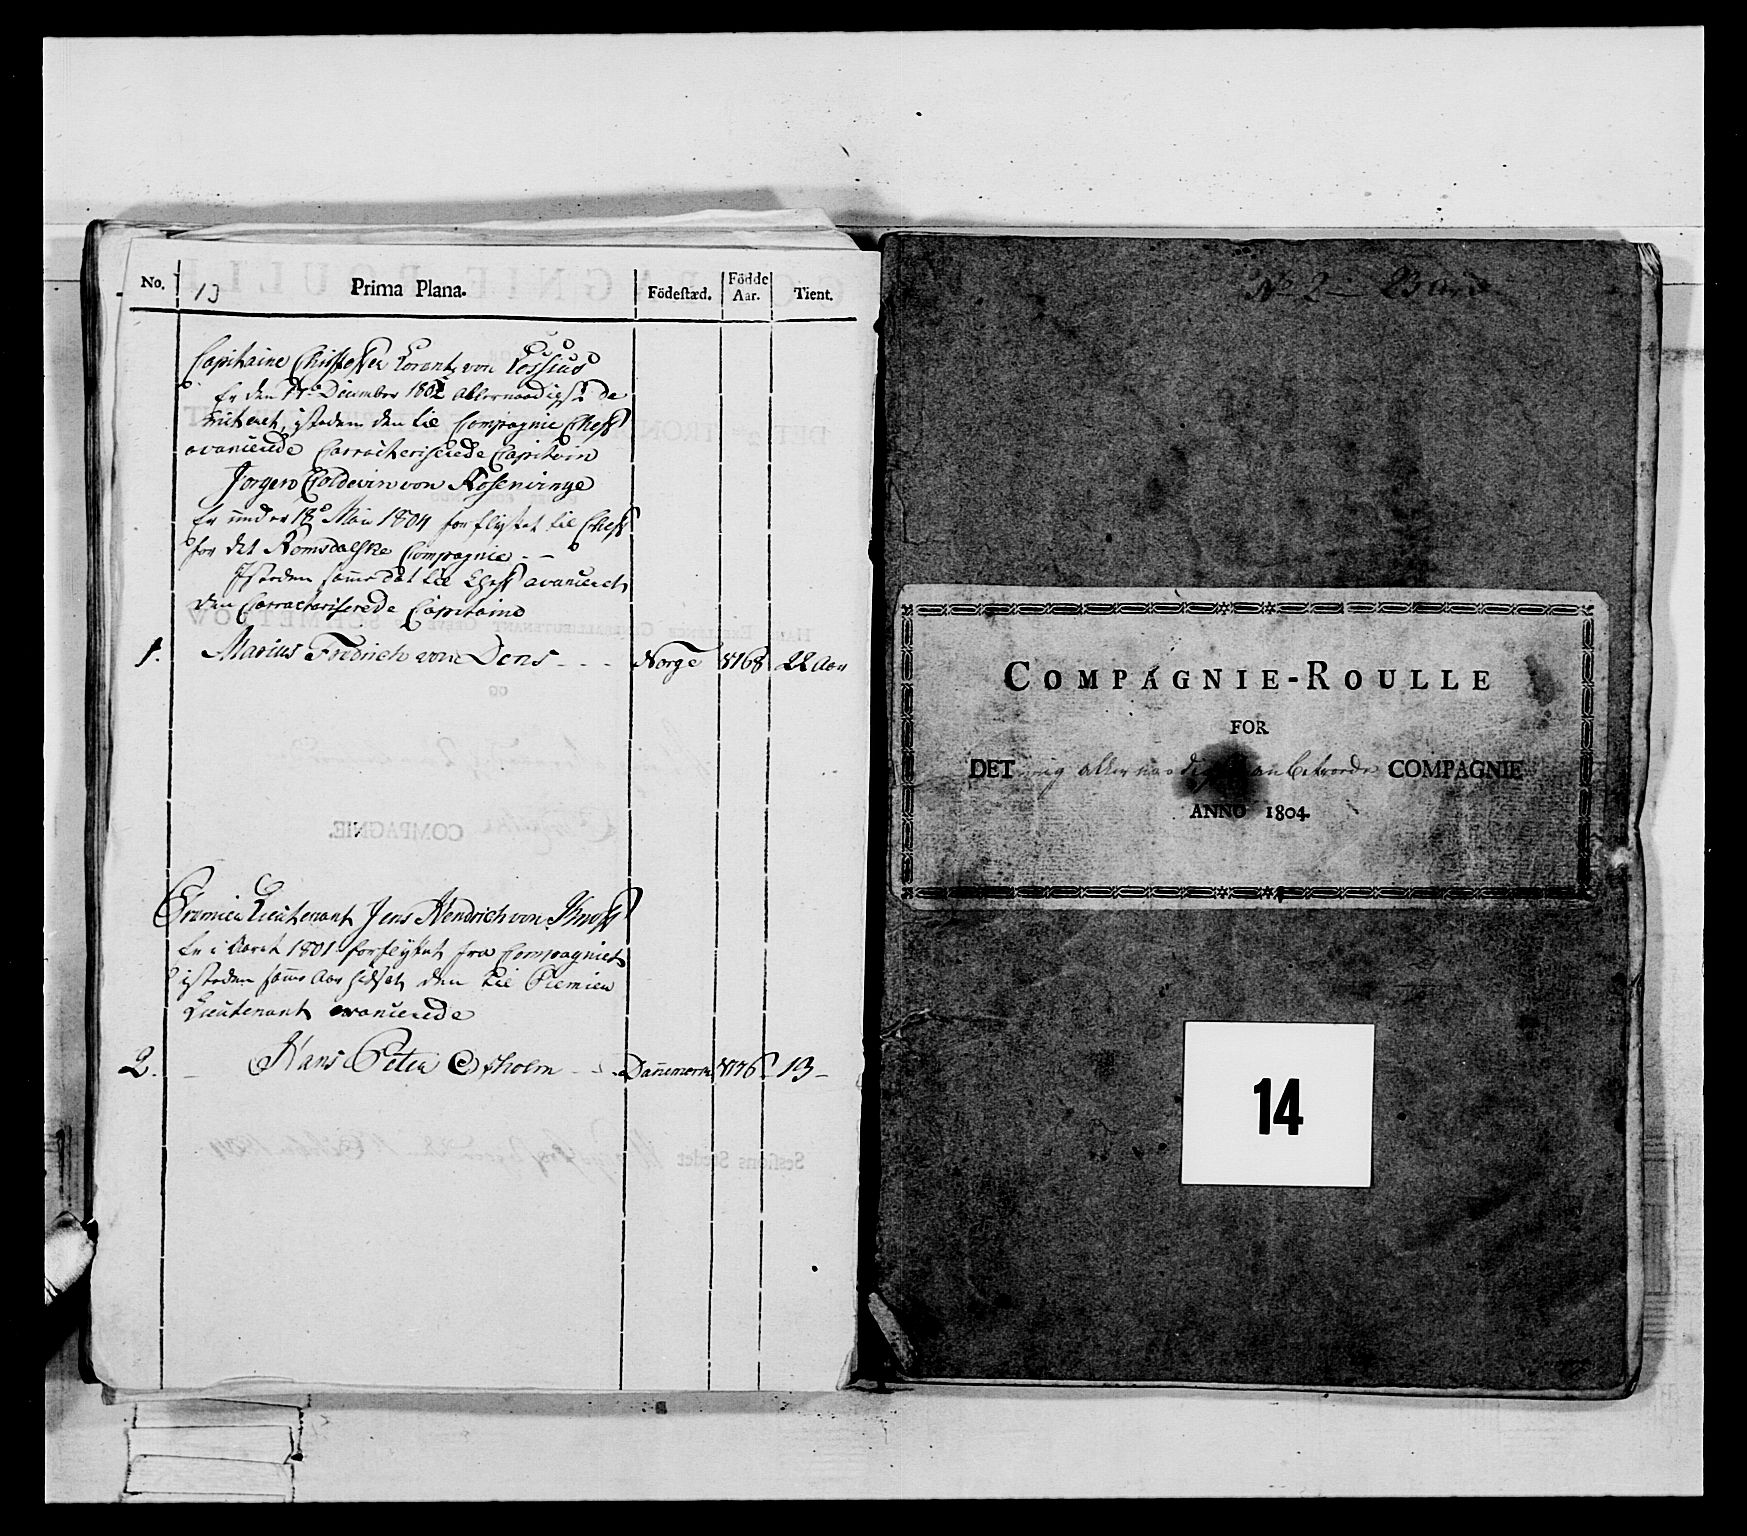 No.
13
Prima Plana.
Födestæd.
Födde Aar.
Tient.
Capitaine Christoffer Lorantz von Lossius
Er den Decimber 1802 allernaadigst de
mitteret, isteden den til Compagnie Cheff
avancerede Carracteriserede Capitain
Jorgen Coldevin von Rosenvinge
Er under 18de Maii 1804 forflyttet til Cheff
for det Romsdalske Compagnie - -
Isteden samme dat til Cheff avanceret
den Carracteriserede Capitaine
1. Marius Fredrich von Dens - - - Norge 1768 22 Aar
Premier Lieutenant Jens Hendrich von Knoff
Er i Aaret 1801 forflyttet fra Compagniet
isteden samme Aar hidsat den til Premier
Lieutenant avancerede
2. Hans Peter Ostholm - - Dannemark 1776 13 -
No 2
COMPAGNIE-ROULLE
FOR
DET mig allernaadigst anbetroede COMPAGNIE
ANNO 1804.
14